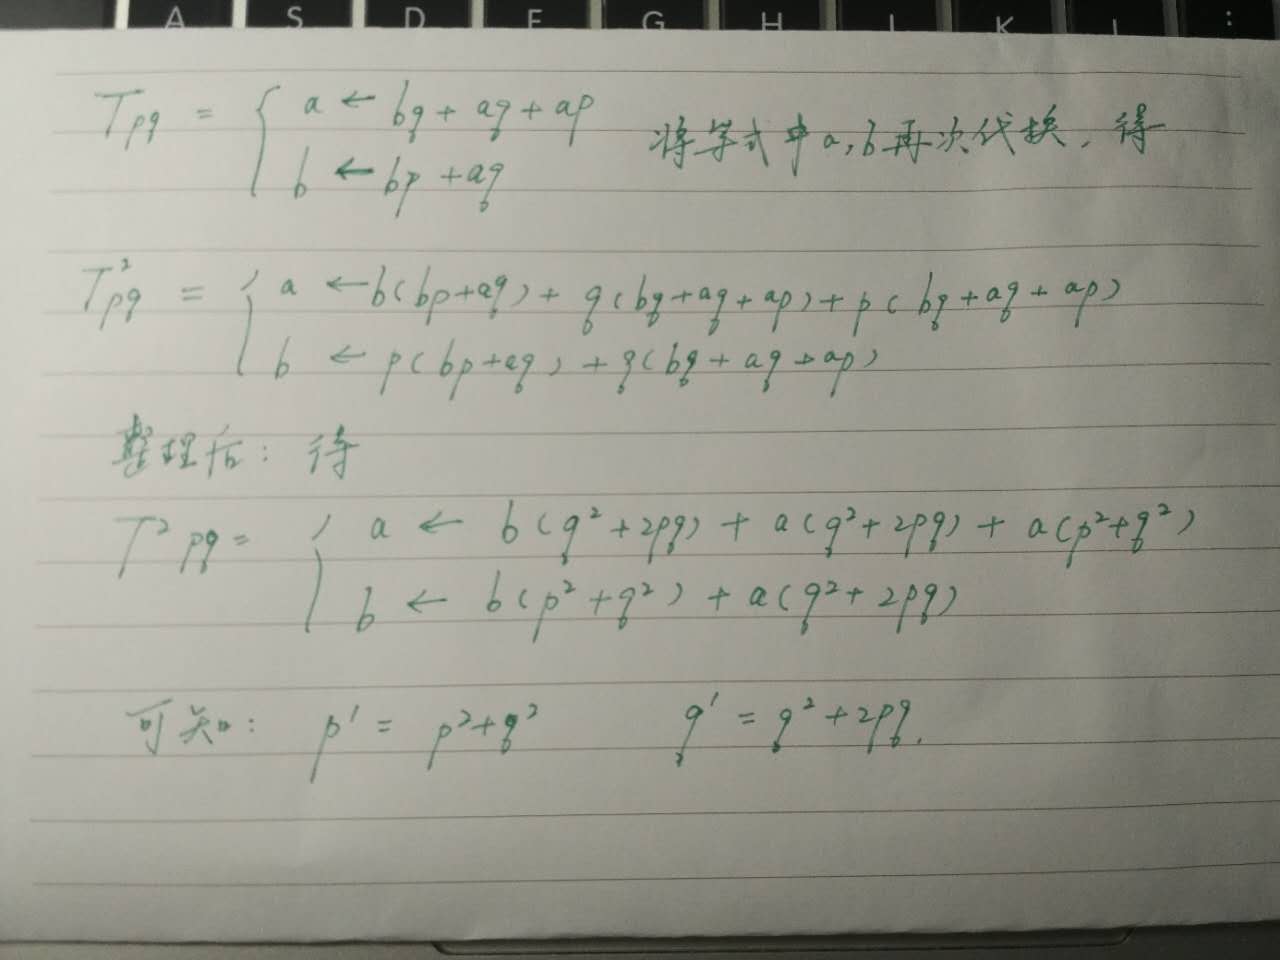 A S D F G H J K L :
Tpq = { a ← bq + aq + ap
b ← bp + aq
将等式中a,b再次代换，得
T²pq = { a ← b(bp+aq) + q(bq+aq+ap) + p(bq+aq+ap)
b ← p(bp+aq) + q(bq+aq+ap)
整理后：得
T²pq = { a ← b(q²+2pq) + a(q²+2pq) + a(p²+q²)
b ← b(p²+q²) + a(q²+2pq)
可知：p' = p²+q² q' = q²+2pq.